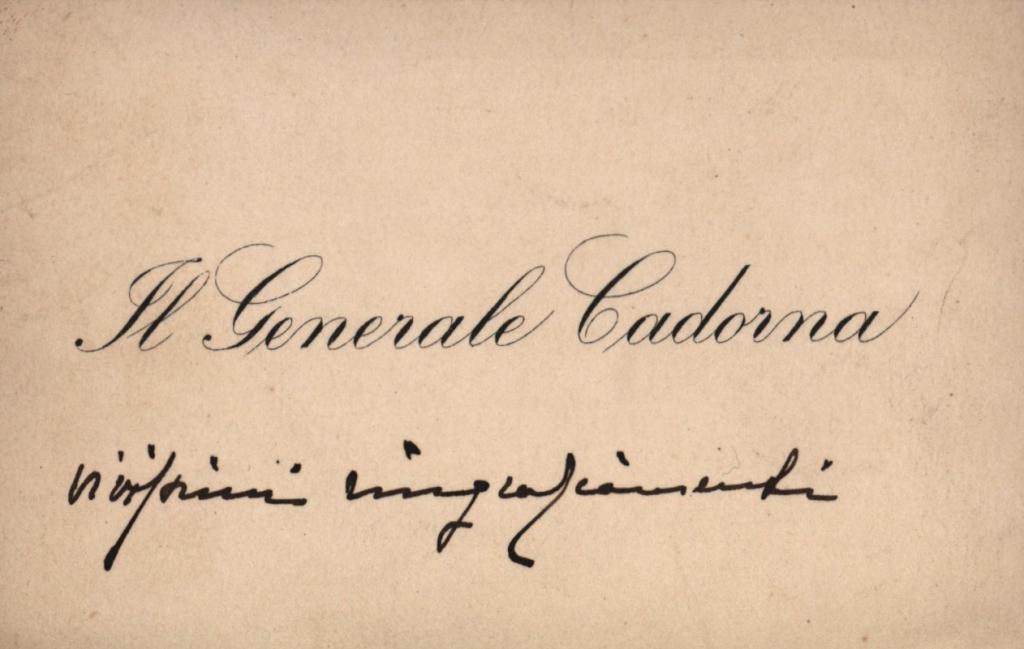 Il Generale Cadorna
vivissimi ringraziamenti